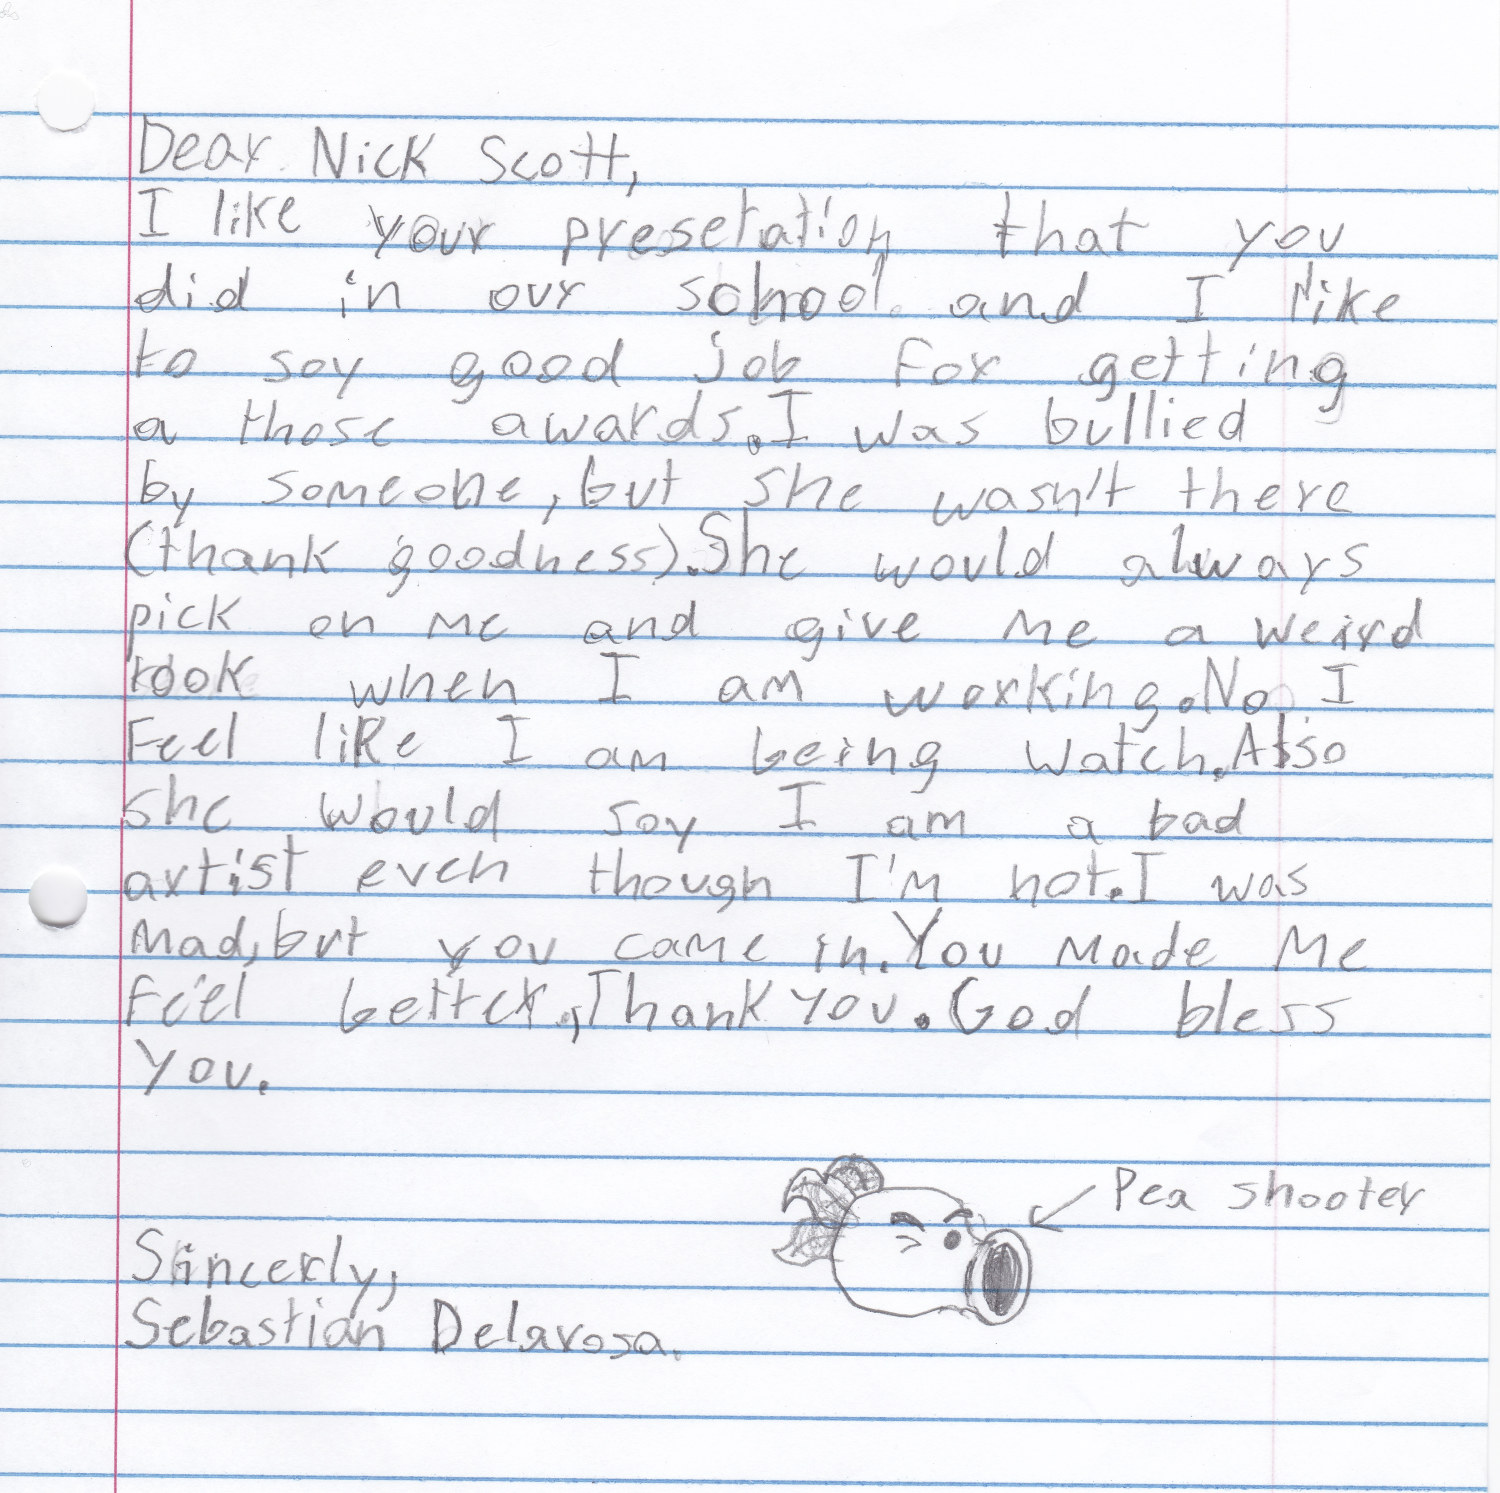 Dear Nick Scott,
I like your presetation that you
did in our school. and I like
to say good job for getting
a those awards. I was bullied
by someone, but she wasn't there
(thank goodness). She would always
pick on me and give me a weird
look when I am working. No I
Feel like I am being watch. Also
she would say I am a bad
artist even though I'm not. I was
mad, but you came in. You made me
Feel better, Thank you. God bless
you.
Pea shooter
Sincerly,
Sebastian Delarosa.